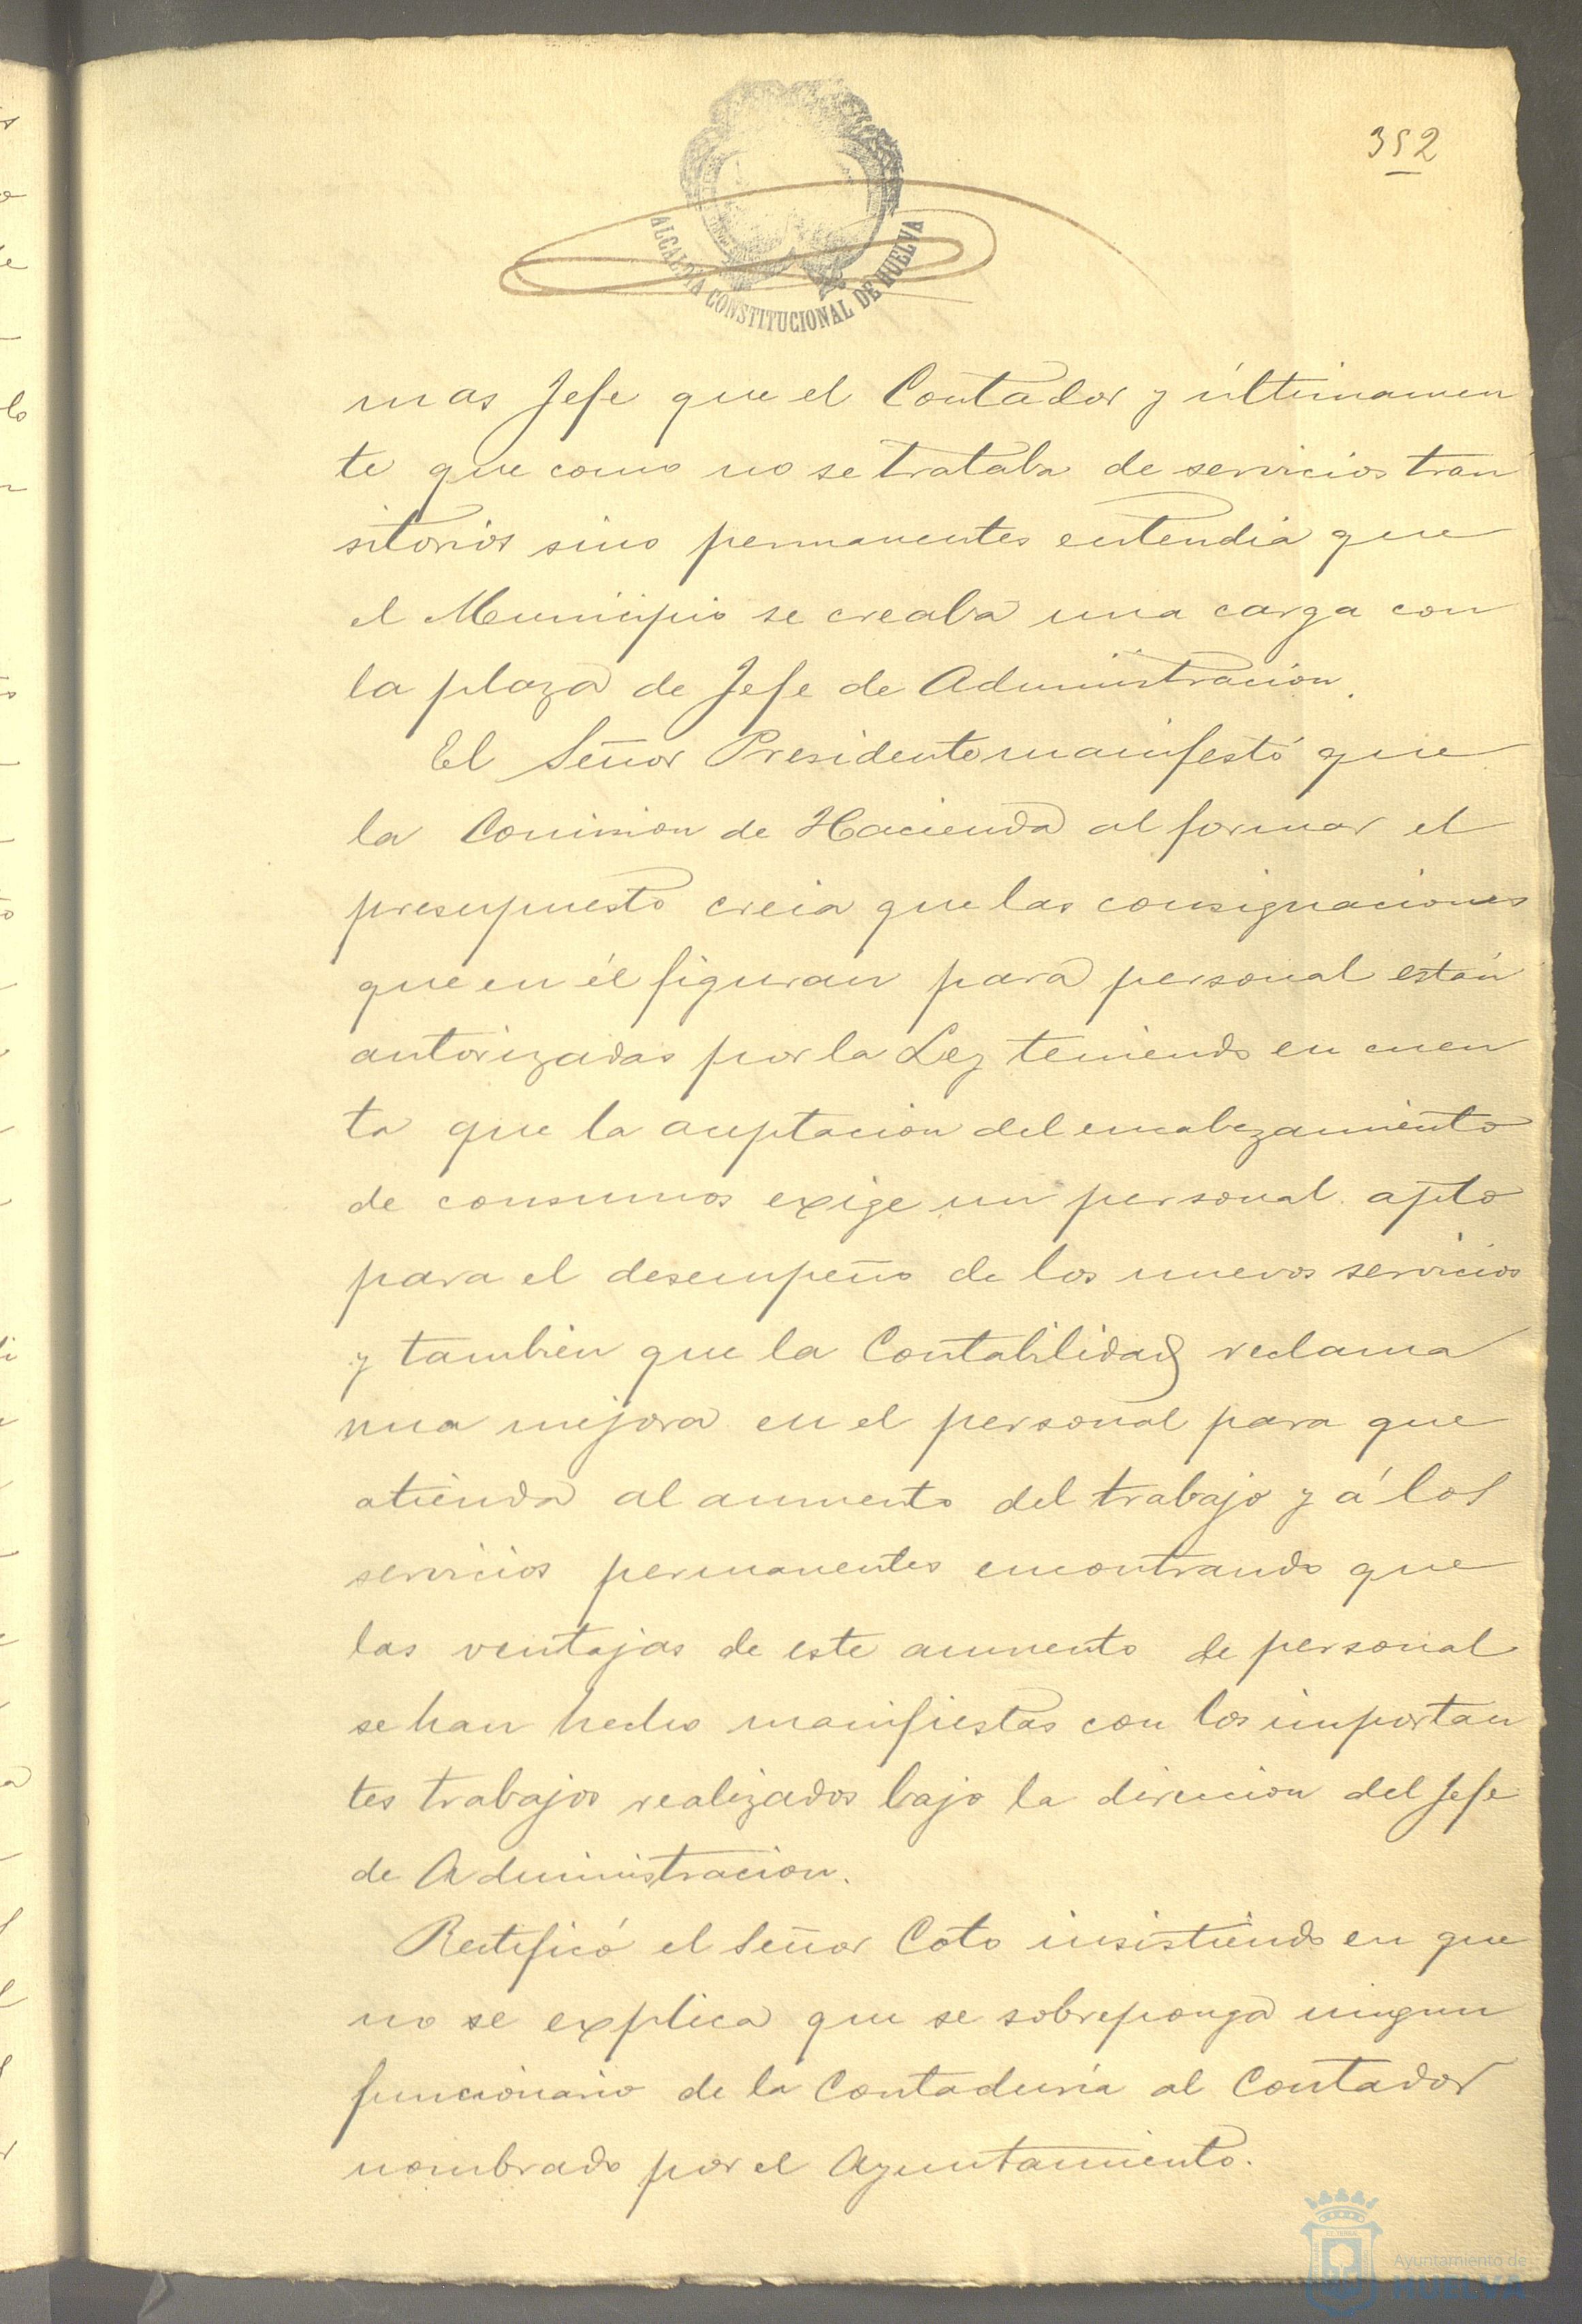 352
ALCALDIA CONSTITUCIONAL DE HUELVA
mas Jefe que el Contador y últimamen
te que como no se trataba de servicios tran
sitorios sino permanentes entendia que
el Municipio se creaba una carga con
la plaza de Jefe de Administracion.
El Señor Presidente manifestó que
la Comision de Hacienda al formar el
presupuesto creia que las consignaciones
que en él figuran para personal están
autorizadas por la Ley teniendo en cuen
ta que la aceptacion del encabezamiento
de consumos exige un personal apto
para el desempeño de los nuevos servicios
y tambien que la Contabilidad reclama
una mejora en el personal para que
atienda al aumento del trabajo y á los
servicios permanentes encontrando que
las ventajas de este aumento de personal
se han hecho manifiestas con los importan
tes trabajos realizados bajo la direccion del Jefe
de Administracion.
Rectificó el Señor Coto insistiendo en que
no se explica que se sobreponga ningun
funcionario de la Contaduria al Contador
nombrado por el Ayuntamiento.
Ayuntamiento de
HUELVA